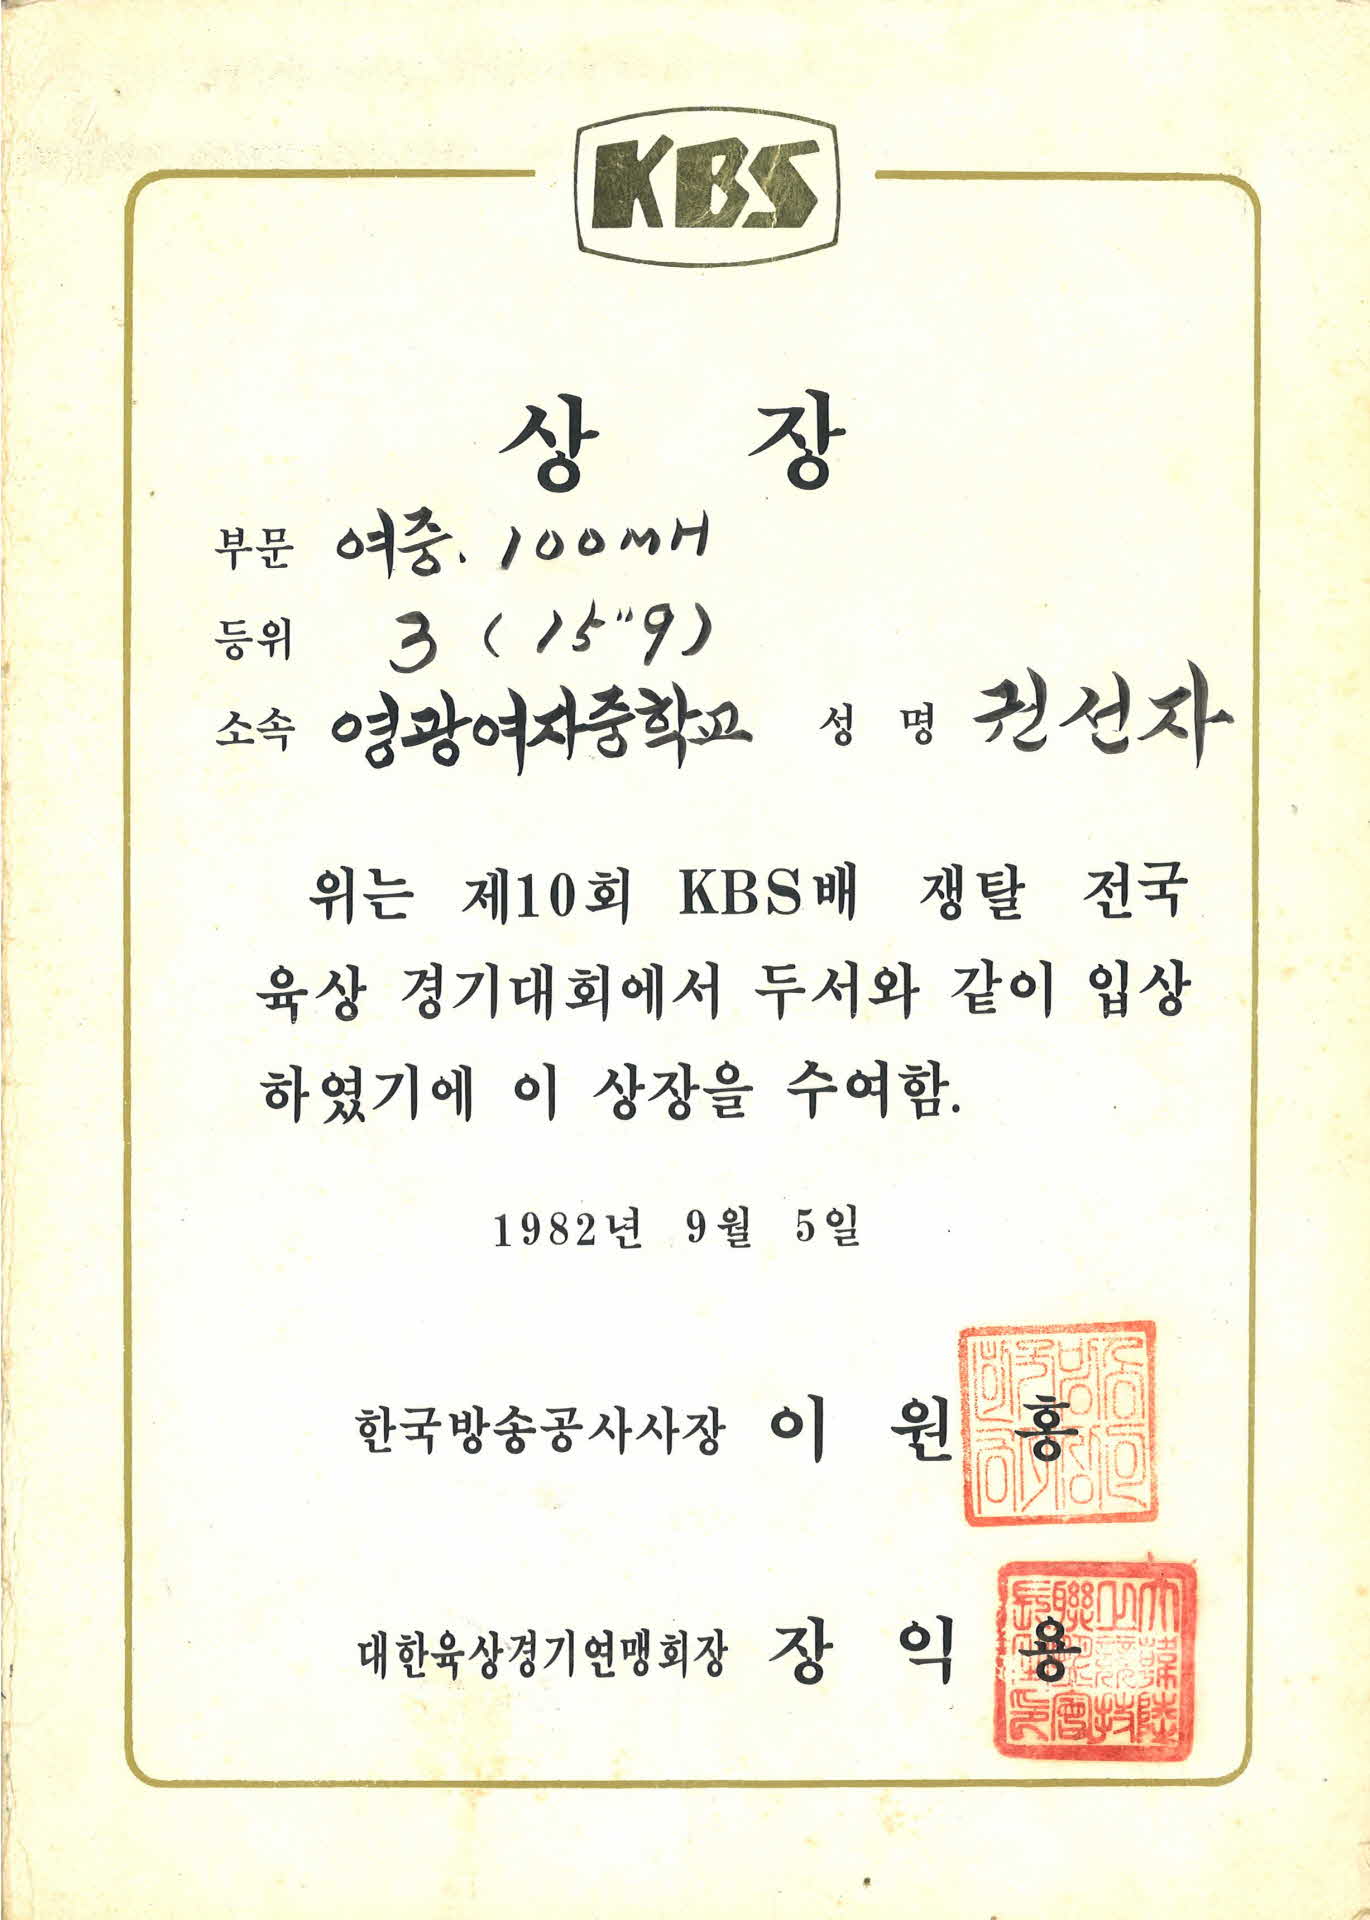 KBS
상 장
부문 여중. 100mH
등위 3 (15"9)
소속 영광여자중학교 성 명 권선자
위는 제10회 KBS배 쟁탈 전국
육상 경기대회에서 두서와 같이 입상
하였기에 이 상장을 수여함.
1982년 9월 5일
한국방송공사사장 이 원 홍
대한육상경기연맹회장 장 익 용